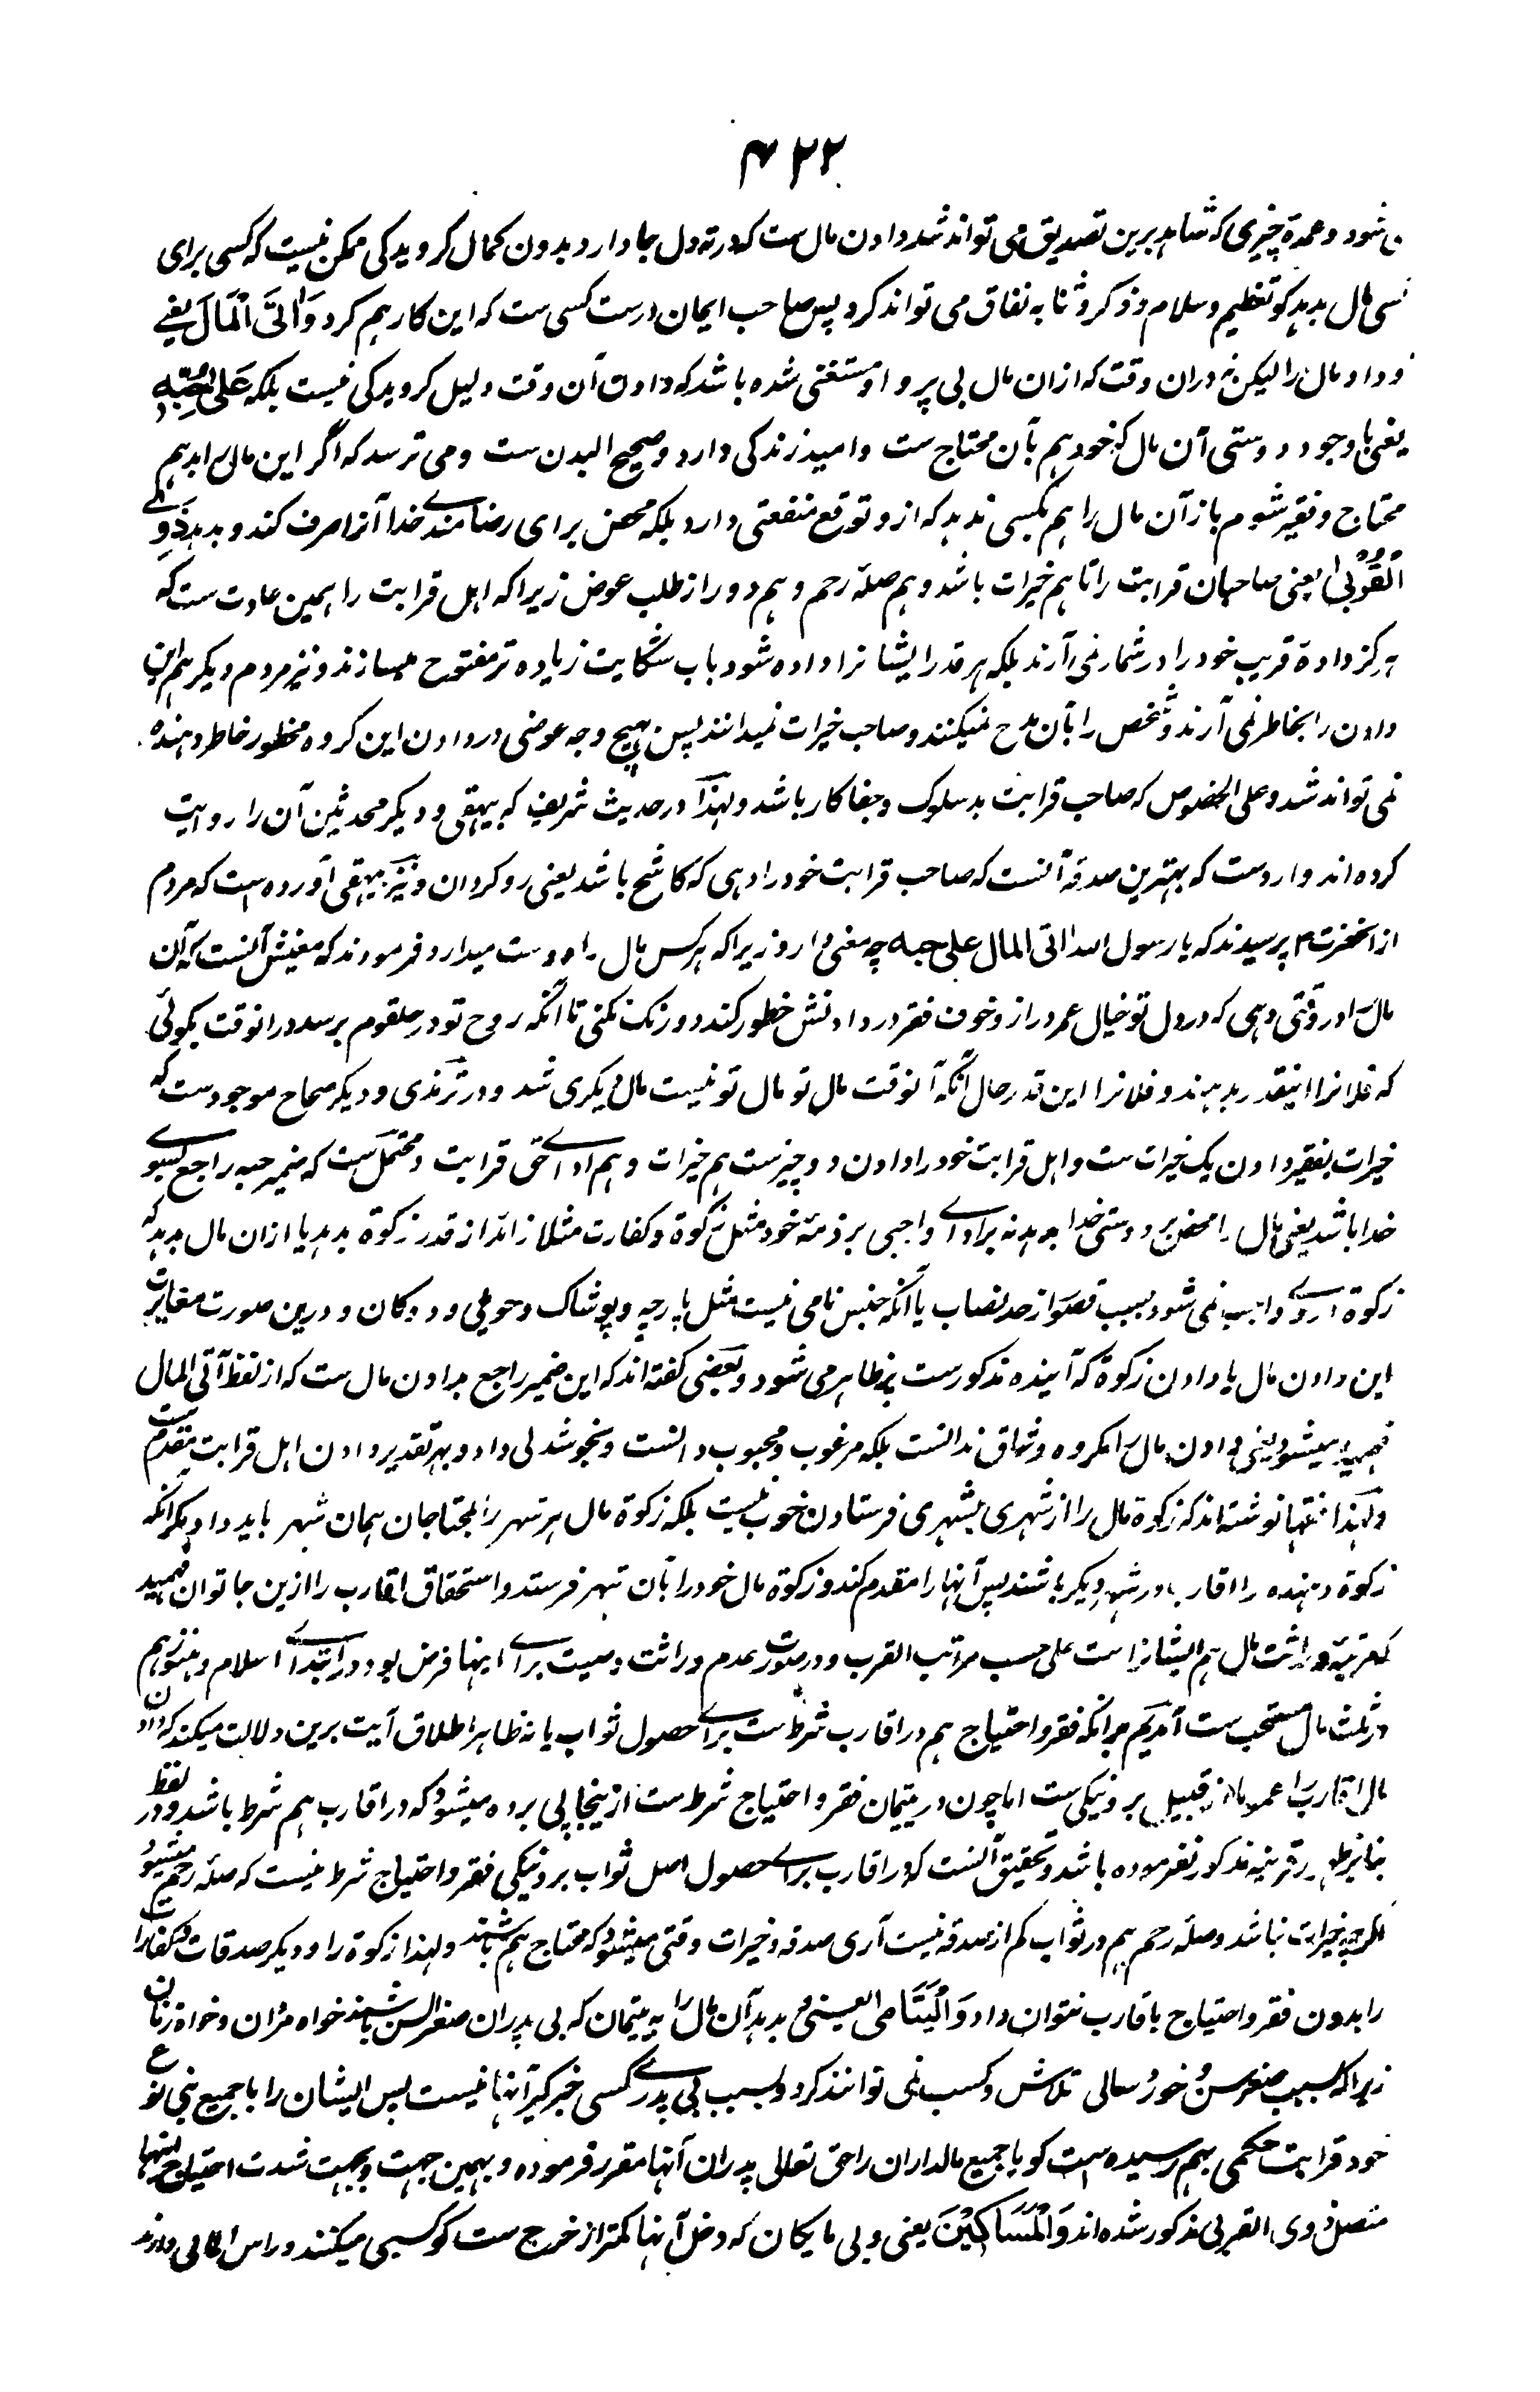 ۴۲۲
شود و عمدۀ چیزی که شاهد برین تصدیق می تواند شد دادن مال ست که در ته دل جا دارد بدون کمال گرویدگی ممکن نیست که کسی برای
کسی مال بدهد گو تعظیم و سلام و ذکر و ثنا به نفاق می تواند کرد پس صاحب ایمان درست کسی ست که این کار هم کرد وَاٰتَی الْمَالَ یعنی
و داد مال را لیکن نه دران وقت که ازان مال بی پروا و مستغنی شده باشد که دادن آن وقت دلیل گرویدگی نیست بلکه عَلٰی حُبِّهٖ
یعنی باوجود دوستی آن مال که خود هم بآن محتاج ست و امید زندگی دارد و صحیح البدن ست و می ترسد که اگر این مال را بدهم
محتاج و فقیر شوم باز آن مال را هم بکسی ندهد که ازو توقع منفعتی دارد بلکه محض برای رضامندے خدا آنرا صرف کند و بدهد ذَوِے
الْقُرْبٰی یعنی صاحبان قرابت را تا هم خیرات باشد و هم صلۀ رحم و هم دور از طلب عوض زیراکه اهل قرابت را همین عادت ست که
هرگز دادۀ قریب خود را در شمار نمی آرند بلکه هر قدر ایشانرا داده شود باب شکایت زیاده تر مفتوح میسازند و نیز مردم دیگر هم این
دادن را بخاطر نمی آرند و شخص را بآن مدح نمیکنند و صاحب خیرات نمیدانند پس هیچ وجه عوضی در دادن این گروه منظور خاطر دهنده
نمی تواند شد و علی الخصوص که صاحب قرابت بدسلوک و جفاکار باشد و لهذا در حدیث شریف که بیهقی و دیگر محدثین آن را روایت
کرده اند وارد ست که بهترین صدقه آنست که صاحب قرابت خود را دهی که کاشح باشد یعنی روگردان و نیز بیهقی آورده است که مردم
از آنحضرت م پرسیدند که یا رسول الله اتی المال علی حبه چه معنی دارد زیراکه هرکس مال را دوست میدارد فرمودند که معنیش آنست که آن
مال را در وقتی دهی که در دل تو خیال عمر دراز و خوف فقر در دادنش خطور کند و درنگ نکنی تا آنکه روح تو در حلقوم برسد درانوقت بگوئی
که فلانرا اینقدر بدهند و فلانرا این قدر حال آنکه آنوقت مال تو مال تو نیست مال دیگری شد و در ترمذی و دیگر صحاح موجود ست که
خیرات بفقیر دادن یک خیرات ست و اهل قرابت خود را دادن دو چیز ست هم خیرات و هم اداے حق قرابت و محتمل ست که ضمیر حبه راجع بسوے
خدا باشد یعنی مال را محض بر دوستی خدا بدهد نه براے اداے واجبی بر ذمۀ خود مثل زکوٰة و کفارت مثلا زائد از قدر زکوٰة بدهد یا ازان مال بدهد که
زکوٰة دروے واجب نمی شود بسبب قصور از حد نصاب یا آنکه جنس نامی نیست مثل پارچه و پوشاک و حویلی و دوکان و درین صورت مغایرت
این دادن مال با دادن زکوٰة که آینده مذکور ست پر ظاهر می شود و بعضی گفته اند که این ضمیر راجع بدادن مال ست که از لفظ آتی المال
فهمیده میشود یعنی دادن مال را مکروه و شاق ندانست بلکه مرغوب و محبوب دانست و بخوشدلی داد و بهر تقدیر دادن اهل قرابت مقدم ست
و لهذا فقها نوشته اند که زکوٰة مال را از شهری بشهری فرستادن خوب نیست بلکه زکوٰة مال هر شهر را بمحتاجان همان شهر باید داد مگر آنکه
زکوٰة دهنده را اقارب در شهر دیگر باشند پس آنها را مقدم کند و زکوٰة مال خود را بآن شهر فرستد و استحقاق اقارب را ازین جا توان فهمید
که قرینۀ وراثت مال هم ایشانرا ست علی حسب مراتب القرب و در صورت عدم وراثت وصیت براے اینها فرض بود در ابتداے اسلام و هنوز هم
در ثلث مال مستحب ست آمدیم بر آنکه فقر و احتیاج هم در اقارب شرط ست براے حصول ثواب یا نه ظاهر اطلاق آیت برین دلالت میکند که دادن
مال اقارب را عموما از قبیل بر و نیکی ست اما چون در یتیمان فقر و احتیاج شرط ست ازینجا پی برده میشود که در اقارب هم شرط باشد و در لفظ
بنابر ظهور قرینه مذکور نفرموده باشد و تحقیق آنست که در اقارب براے حصول اصل ثواب بر و نیکی فقر و احتیاج شرط نیست که صلۀ رحم میشود
اگرچه خیرات نباشد و صلۀ رحم هم در ثواب کم از صدقه نیست آری صدقه و خیرات وقتی میشود که محتاج هم باشند و لهذا زکوٰة را و دیگر صدقات و کفارات
را بدون فقر و احتیاج باقارب نتوان داد وَالْیَتَامٰی یعنی و بدهد آن مال را به یتیمان که بی پدران صغیر السن باشند خواه مردان و خواه زنان
زیراکه بسبب صغر سن و خورد سالی تلاش و کسب نمی توانند کرد و بسبب بی پدرے کسی خبرگیر آنها نیست پس ایشان را با جمیع بنی نوع
خود قرابت حکمی بهم رسیده است گویا جمیع مالداران را حق تعالی پدران آنها مقرر فرموده و بهمین جهت و بجهت شدت احتیاج اینها
متصل ذوی القربی مذکور شده اند وَالْمَسَاکِیْنَ یعنی و بی مایگان که دخل آنها کمتر از خرج ست گو کسبی میکنند و راس المالی دارند